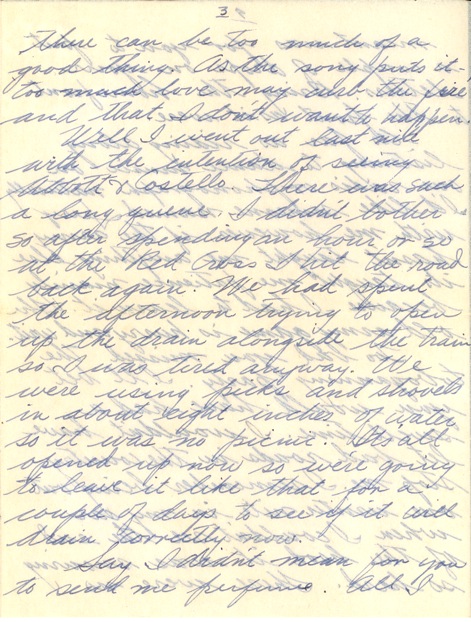 3
There can be too much of a
good thing. As the song puts it -
too much love may curb the fire
and that I don't want to happen.
Well I went out last nite
with the intention of seeing
Abbott & Costello. There was such
a long queue I didn't bother -
so after spending an hour or so
at the Red Cross I hit the road
back again. We had spent
the afternoon trying to open
up the drain alongside the train
so I was tired anyway. We
were using picks and shovels
in about eight inches of water
so it was no picnic. Its all
opened up now so we're going
to leave it like that for a
couple of days to see if it will
drain correctly now.
Say I didn't mean for you
to send me perfume. All I